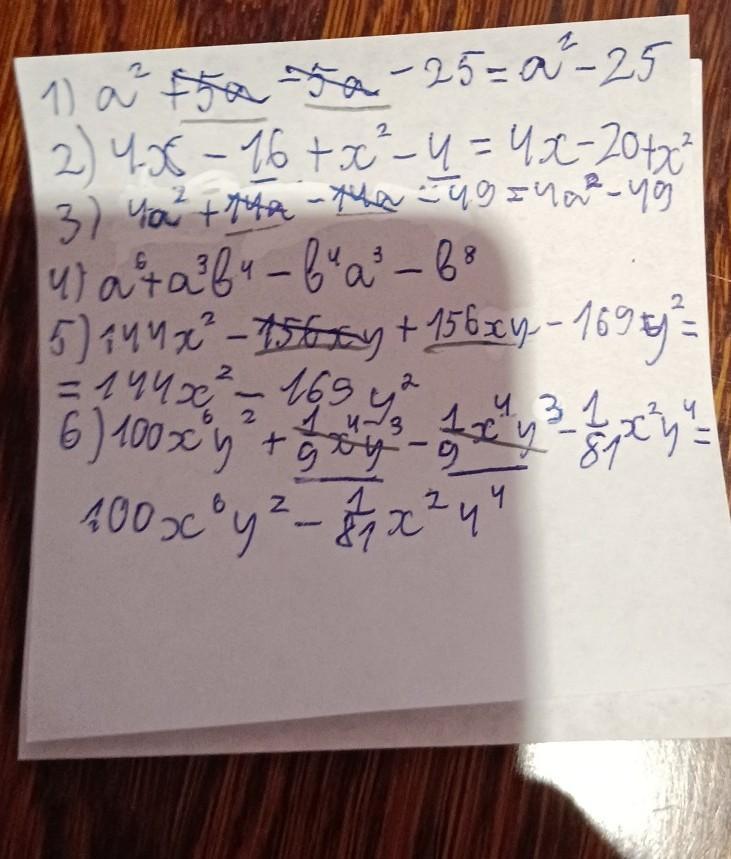 1) a² + 5a - 5a - 25 = a² - 25
2) 4x - 16 + x² - 4 = 4x - 20 + x²
3) 4a² + 14a - 14a - 49 = 4a² - 49
4) a⁶ + a³b⁴ - b⁴a³ - b⁸
5) 144x² - 156xy + 156xy - 169y² =
= 144x² - 169y²
6) 100x⁶y² + 1/9 x⁴y³ - 1/9 x⁴y³ - 1/81 x²y⁴ =
100x⁶y² - 1/81 x²y⁴